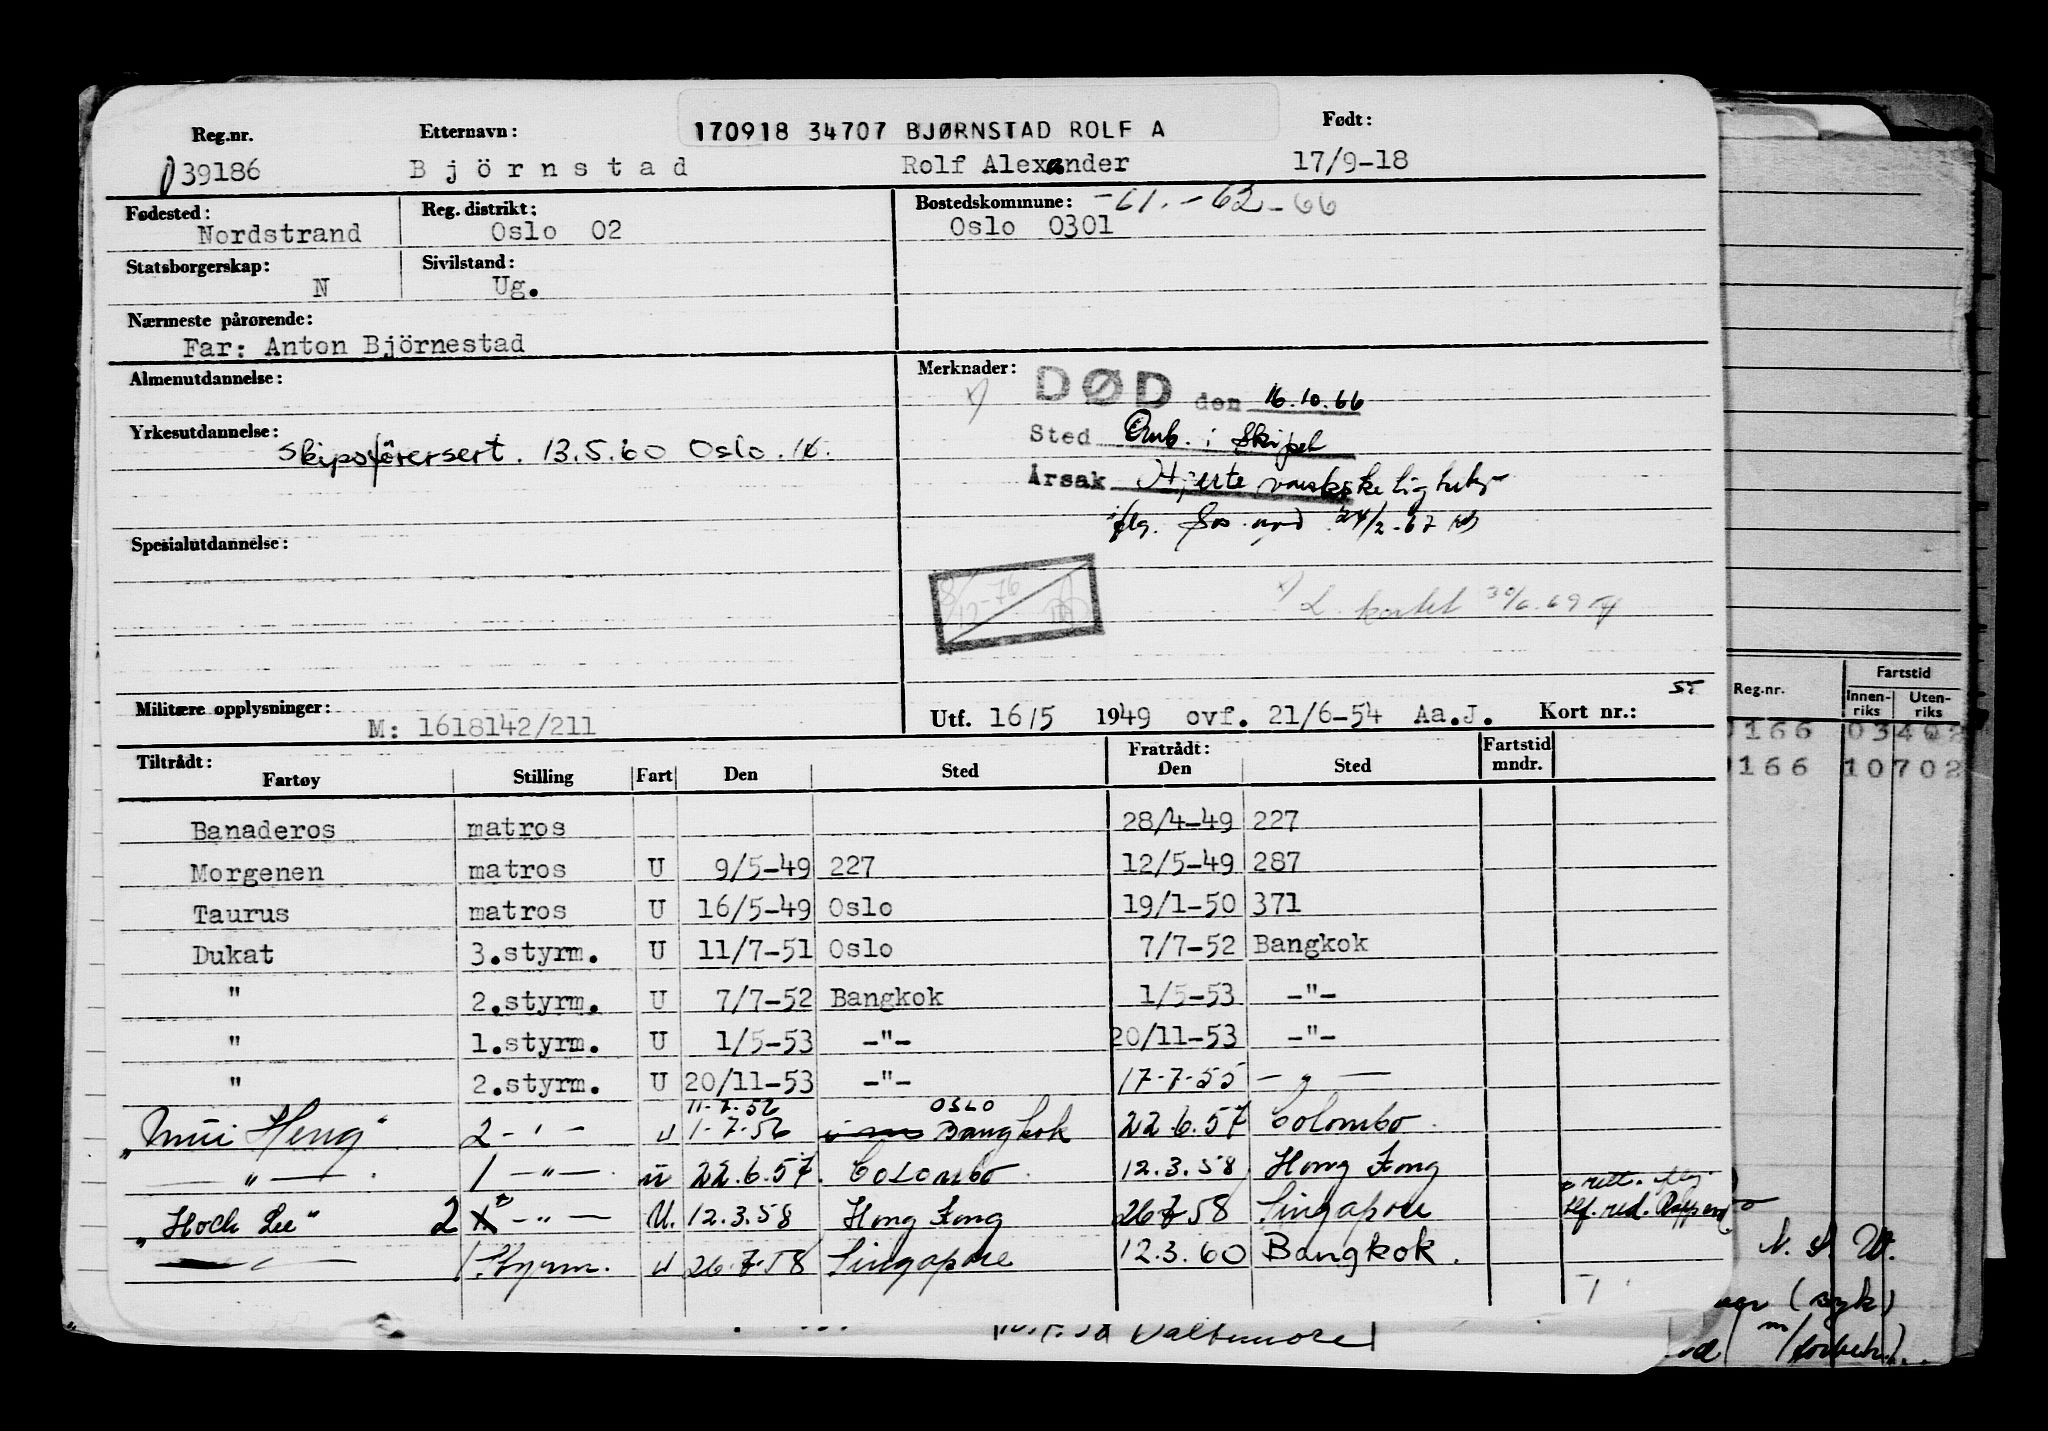 Reg.nr. Etternavn: 170918 34707 BJØRNSTAD ROLF A Født:
039186 Björnstad Rolf Alexander 17/9-18
Fødested: Reg. distrikt: Bostedskommune: -61.-62-66
Nordstrand Oslo 02 Oslo 0301
Statsborgerskap: Sivilstand:
N Ug.
Nærmeste pårørende:
Far: Anton Björnestad
Almenutdannelse: Merknader: x) DØD den 16.10.66
Yrkesutdannelse: Sted Omb. i Skipet
Skipsförersert. 13.5.60 Oslo.
Årsak Hjerte
Spesialutdannelse: 24/2-67
8/12-76
x) L. kortet 30/6.69
Militære opplysninger: Utf. 16/5 1949 ovf. 21/6-54 Aa.J. Kort nr.:
M: 1618142/211
Tiltrådt: Fratrådt: Fartstid
Fartøy Stilling Fart Den Sted Den Sted mndr.
Banaderos matros 28/4-49 227
Morgenen matros U 9/5-49 227 12/5-49 287
Taurus matros U 16/5-49 Oslo 19/1-50 371
Dukat 3.styrm. U 11/7-51 Oslo 7/7-52 Bangkok
" 2.styrm. U 7/7-52 Bangkok 1/5-53 -"-
" 1.styrm. U 1/5-53 -"- 20/11-53 -"-
" 2.styrm. U 20/11-53 -"- 17-7-55 -"-
11-7-56 OSLO
"Mui Heng" 2 -"- u 1-7-56 Bangkok 22.6.57 Colombo
-"- 1 -"- u 22.6.57. Colombo. 12.3.58 Hong Kong
"Hoch Lee" 2 -"- U. 12.3.58 Hong Kong 26.7.58 Singapore
-"- 1.Styrm. u 26.7.58 Singapore 12.3.60 Bangkok.
Baltimore
Reg.nr. Fartstid
Innen-riks Uten-riks
0166 03402
0166 10702
(syk)